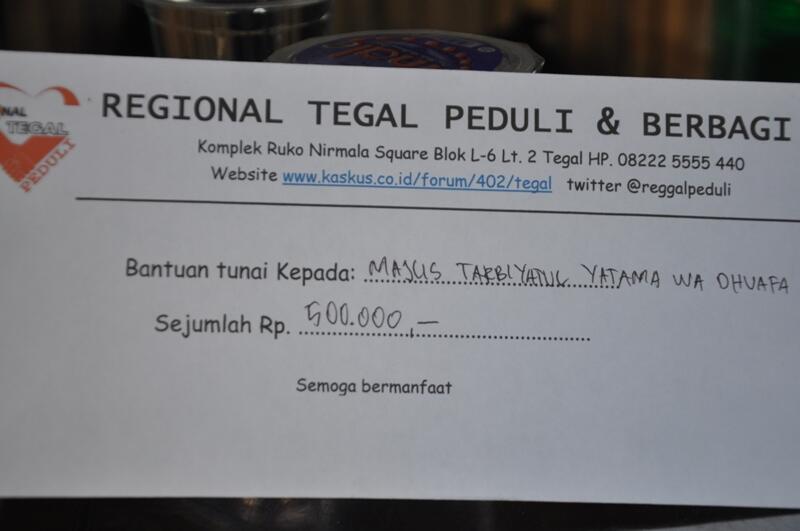 REGIONAL TEGAL PEDULI & BERBAGI
NAL
TEGAL
PEDULI
Komplek Ruko Nirmala Square Blok L-6 Lt. 2 Tegal HP. 08222 5555 440
Website www.kaskus.co.id/forum/402/tegal twitter @reggalpeduli
Bantuan tunai Kepada: MAJLIS TARBIYATUL YATAMA WA DHUAFA
Sejumlah Rp. 500.000,-
Semoga bermanfaat